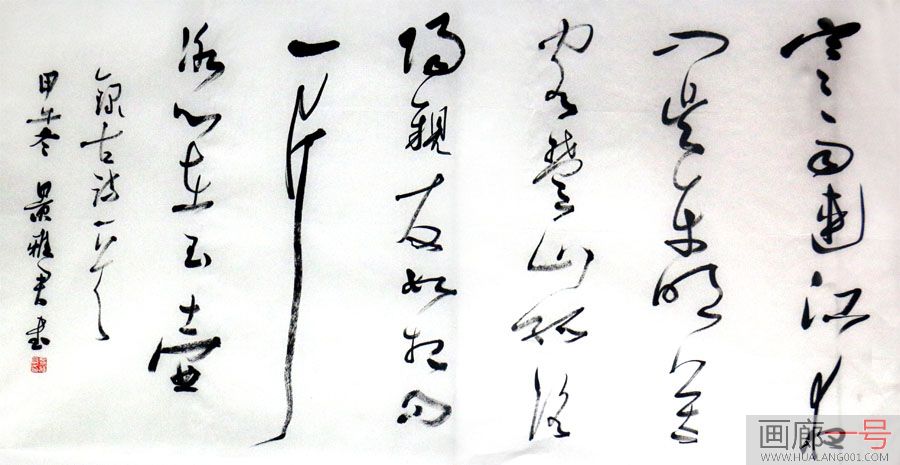 寒雨連江夜
入吴平明送
客楚山孤洛
陽親友如相問
一片
冰心在玉壶
錄古詩一首
甲午冬 景雅君書
画廊一号
WWW.HUALANG001.COM